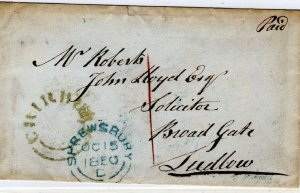 Paid
Mr Roberts
John Lloyd Esq
Solicitor
Broad Gate
Ludlow
SHREWSBURY
OC 15
1860